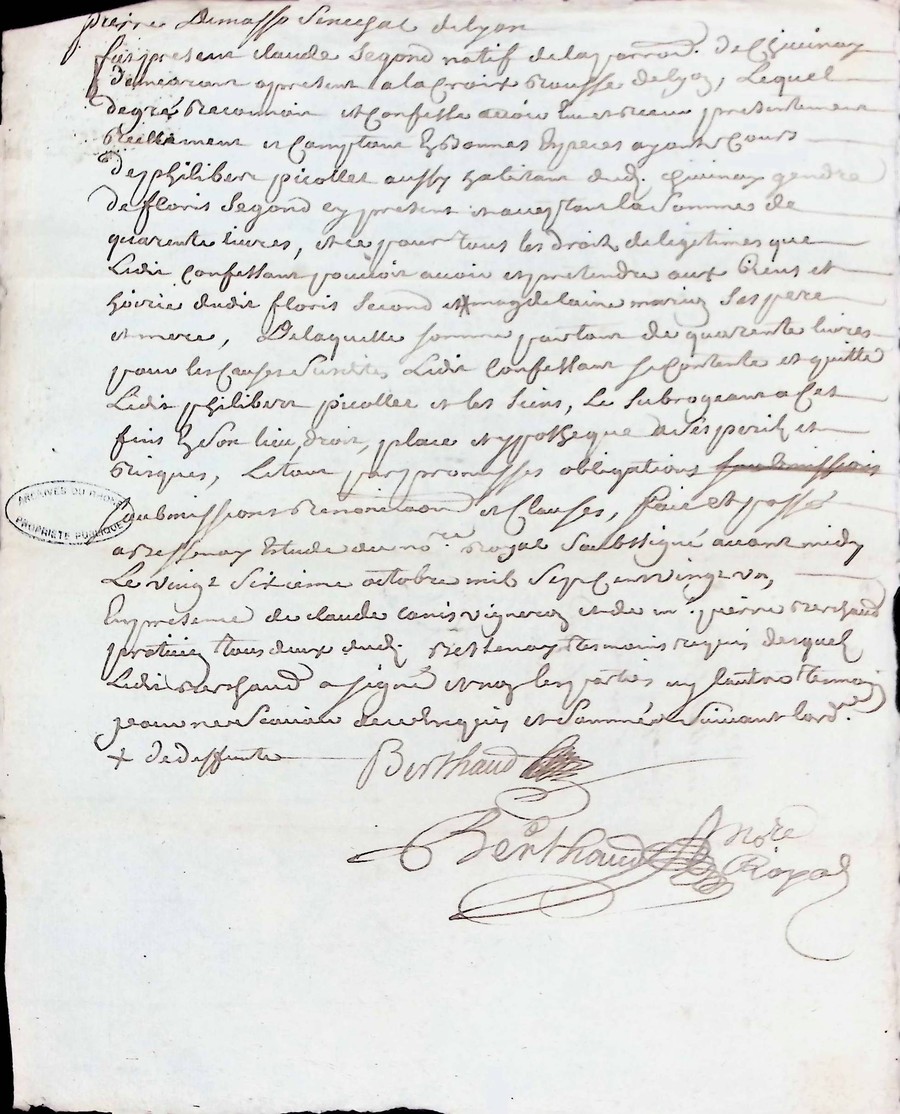 pierre Demasso Senechal de lyon
fut present claude Segond natif de la parroi. de Chiuinay
demeurant apresent a la Croix Rousse de lyon, Lequel
de gré Reconnoit et Confesse auoir eu et receu presentement
Reellement et Comptant En bonnes Especes ayant Cours
de philibert picollet aussy habitant dud. Chiuinay gendre
de floris Segond cy present et acceptant la Somme de
quarente liures, et ce pour tous les droit de legetimes que
Ledit Confessant pouuoit auoir et pretendre aux biens et
hoirie dudit floris Second et + magdelaine Ses pere
et mere, De laquelle somme partant de quarente liures
pour les Causes Susdites Ledit Confessant se Contente et quitte
Ledit philibert picollet et les Siens, Le Subrogeant a Cet
fins En Son lieu, droit, place et ypotheque a Ses perils et
Risques, Le tout par promesses obligations soubmissions
soubmissions Renonciaons et Clauses, fait et passé
a Bessenay Estude du no.re Royal Soubsigné auant midy
Le vingt Sixieme octobre mil Sept Cent vingt un,
En presence de claude vigneron et de m. pierre Berthaud
praticien tous deux dud. Bessenay tesmoins requis desquel
Ledit Berthaud a signé et non les parties ny l'autre temoin
pour ne Scauoir de ce Enquis et Sommés Suiuant l'ord.ce
+ de deffunte
Berthaud
Berthaud No.re
Royal
ARCHIVES DU RHONE
PROPRIETE PUBLIQUE